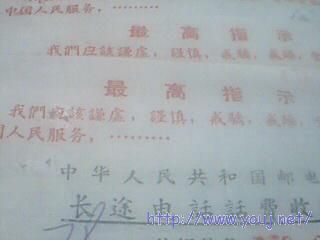 中国人民服务，………
最高指示
我們应该謙虛，謹慎，戒驕，戒躁，
最高指示
我們应該謙虛，謹慎，戒驕，戒躁，
国人民服务，………
中华人民共和国邮电
长途电話話費收
http://www.youj.net/